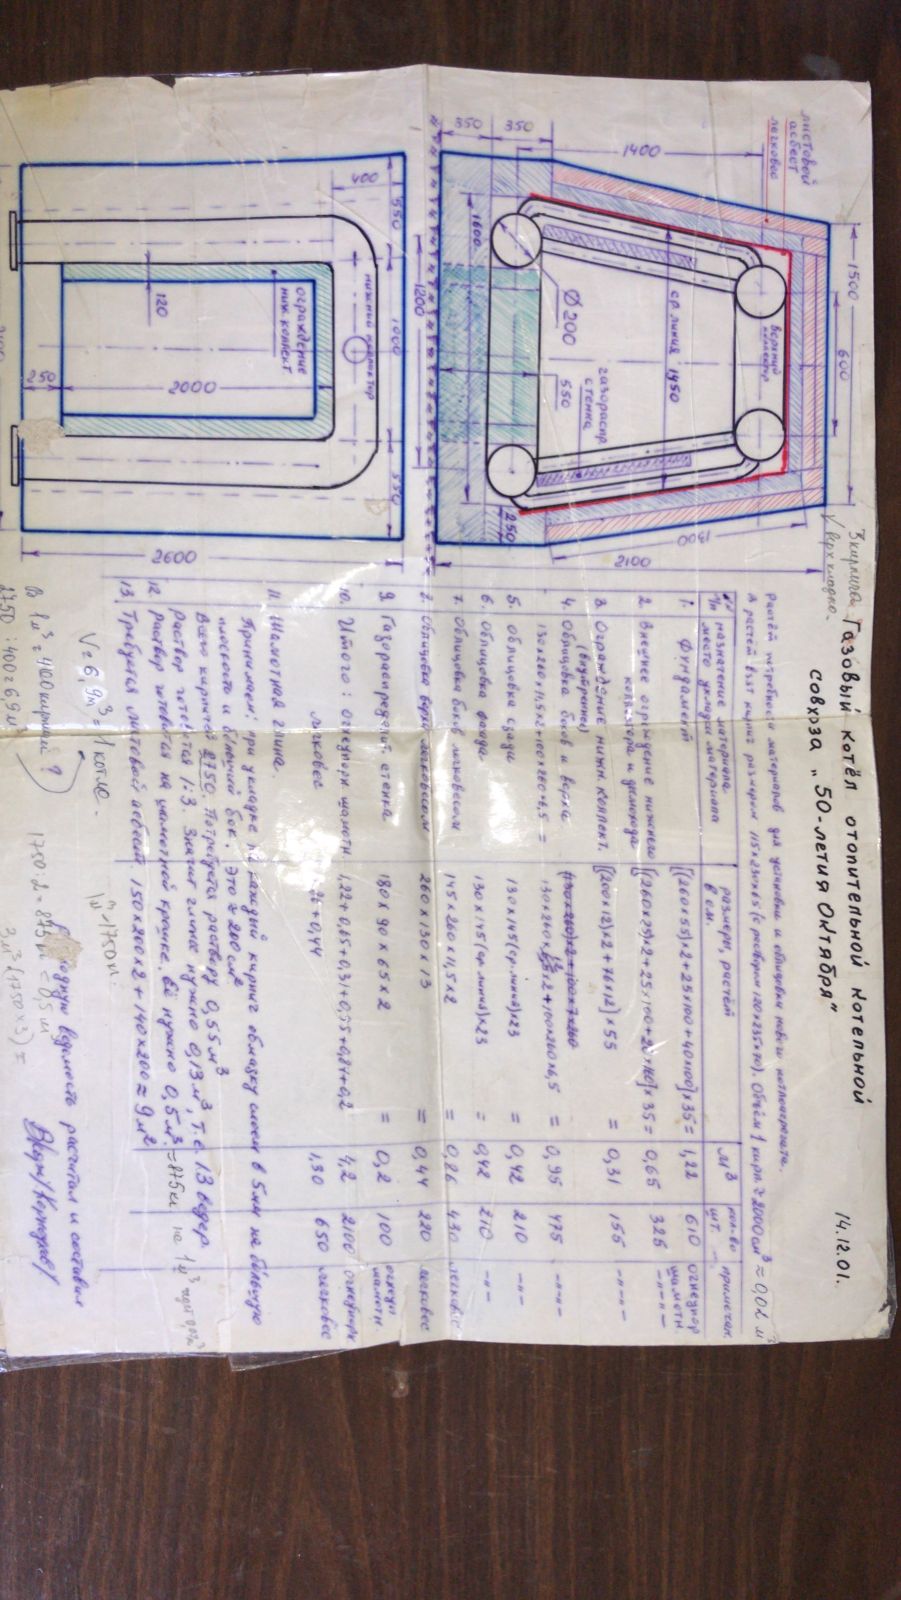 Газовый котёл отопительной котельной
совхоза „50-летия Октября"
14.12.01.
Расчёт потребности материалов для установки и облицовки нового котлоагрегата.
В расчёт взят кирпич размером 115×230×65 (с раствором 120×235×70). Объём 1 кирп. ≈ 2000 см³ = 0,02 м³
№ п/п
назначение материала место укладки материала
размеры, расчёт в см.
м³
кол-во шт.
примечан
1. Фундамент [(260×55)×2+25×100+40×100]×35 = 1,22 610 огнеупор шамотн.
2. Внешнее ограждение нижнего коллектора и дымохода ×35 = 0,65 325 -"-"-
3. Ограждение нижн. коллект. [(200×12)×2+76×12]×55 = 0,31 155 -"-"-
4. Облицовка боков и верха (внутренняя) = 0,95 475 -"-"-
5. Облицовка сзади 130×145 (ср. линия)×23 = 0,42 210 -"-
6. Облицовка фасада 130×145 (ср. линия)×23 = 0,42 210 -"-
7. Облицовка боков легковесом 145×260×11,5×2 = 0,86 430 легковес
8. Облицовка верха легковесом 260×130×13 = 0,44 220 легковес
9. Газораспределит. стенка 180×90×65×2 = 0,2 100 огнеуп шамотн
10. Итого: огнеупорн. шамотн. 1,22+0,65+0,31+0,95+0,84+0,2 4,2 2100 огнеупорн
легковес 0,86+0,44 1,30 650 легковес
11. Шамотная глина.
Принимаем: при укладке на каждый кирпич обмазку слоем в 5 мм на большую
плоскость и больший бок. Это ≈ 200 см³
Всего кирпичей 2750. Потребуется раствору 0,55 м³
Раствор готовится 1:3. Значит глины нужно 0,13 м³, т.е. 13 ведер
12. Раствор готовится на шамотной крошке. Её нужно 0,5 м³. = 875 кг на 1 м³
13. Требуется листовой асбест. 150×200×2+140×200 ≈ 9 м²
ведомость рассчитал и составил
V = 6,9 м³ = 1 котло.
1м³ = 1750 кг.
В 1 м³ = 400 кирпичей ?
2750 : 400 = 6,9 м³
1750 : 2 = 875 кг = 0,5 м
3м³ (1750×3) =
листовой
асбест
легковес
1500
600
верхний коллектор
1400
350
350
ср. линия 1450
1600
Ø 200
550
газораспр
стенка
250
1300
2100
1200
550
1000
550
400
нижний коллектор
ограждение
ниж. коллект.
120
2000
250
2600